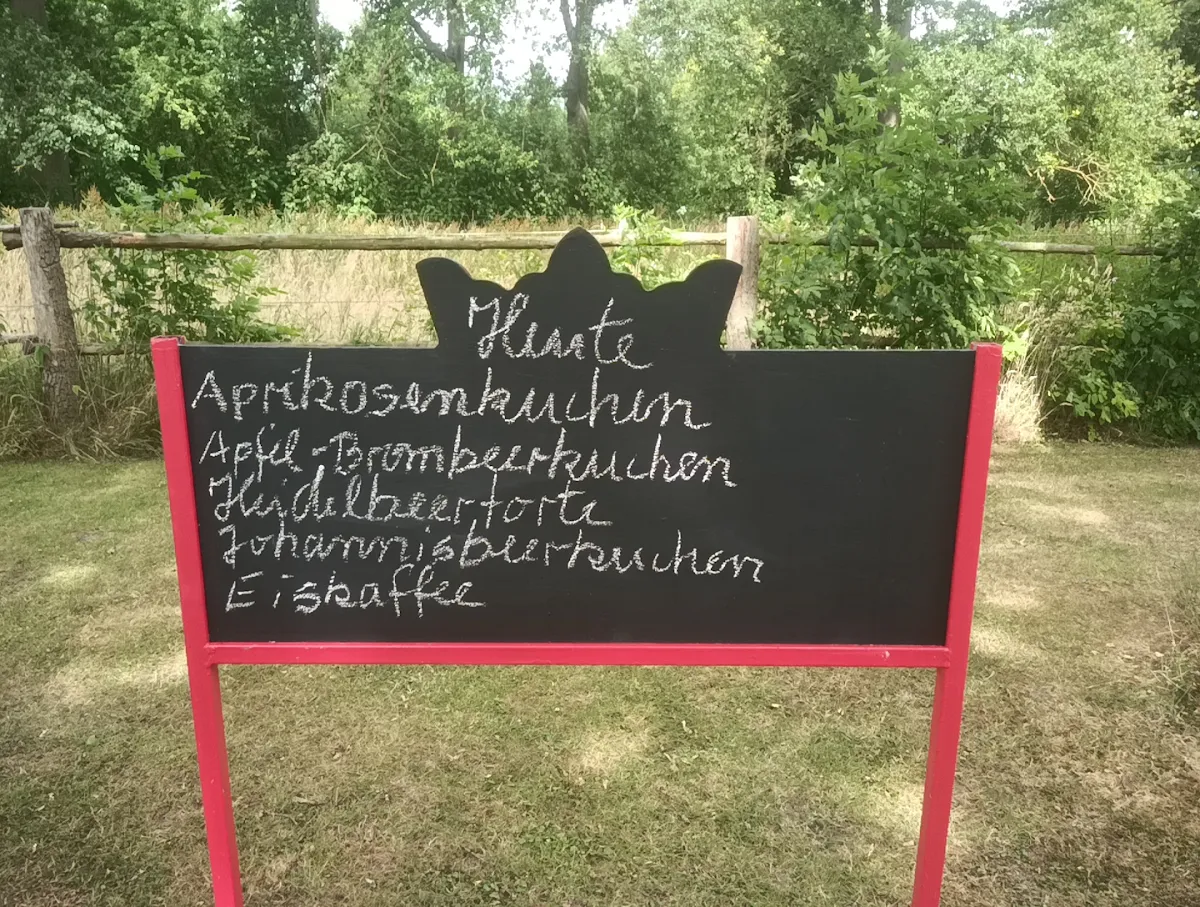 Heute
Aprikosenkuchen
Apfel-Brombeerkuchen
Heidelbeertorte
Johannisbeerkuchen
Eiskaffee